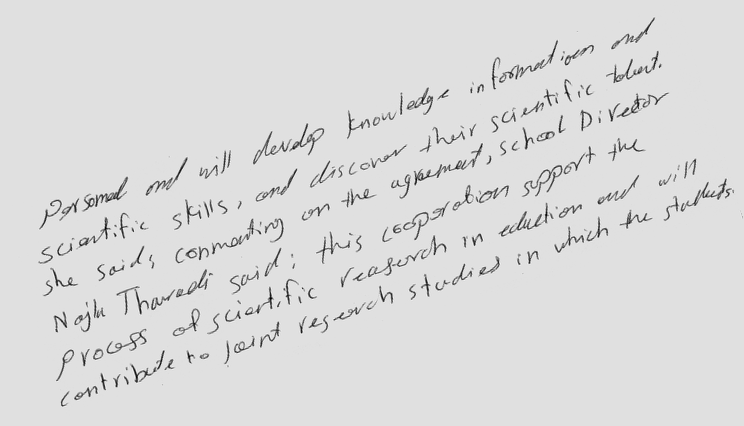 Personal and will develop knowledge information and
scientific skills, and discover their scientific talent.
she said; commenting on the agreement, school Director
Najla Tharwadi said; this cooperation support the
process of scientific reaserch in eduction and will
contribute to joint research studies in which the students.